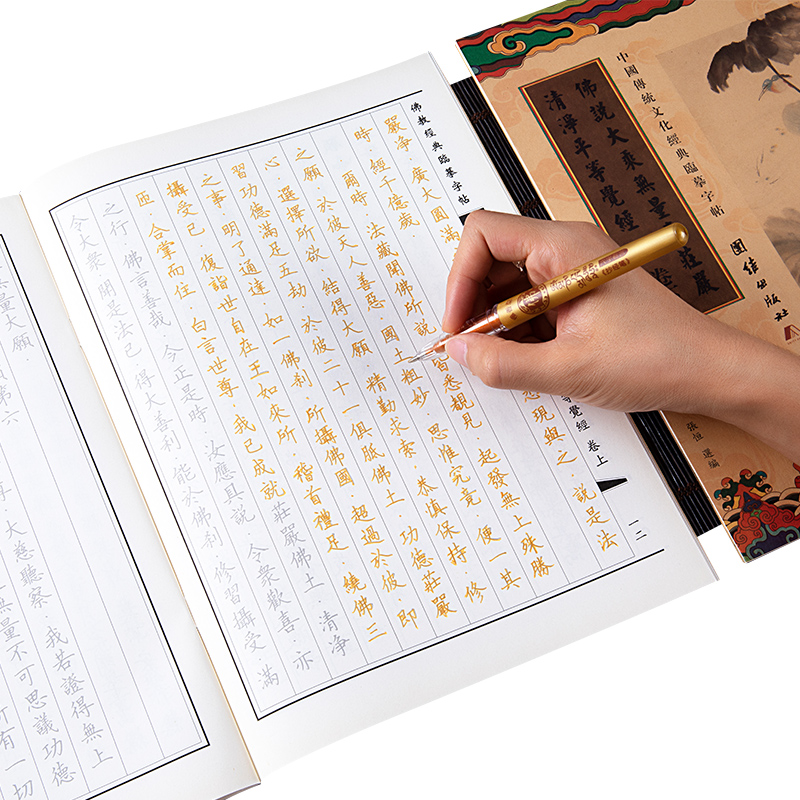 中國傳統文化經典臨摹字帖
佛說大乘無量
莊嚴
清淨平等覺經
團结出版社
選編
佛教經典臨摹字帖
等覺經 卷上
一二
嚴净.廣大圓滿
悉現與之.說是法
時.經千億歲.
爾時.法藏聞佛所說.皆悉覩見.起發無上殊勝
之願.於彼天人善惡.國土粗妙.思惟究竟.便一其
心.選擇所欲.結得大願.精勤求索.恭慎保持.修
習功德滿足五劫.於彼二十一俱胝佛土.功德莊嚴
之事.明了通達.如一佛刹.所攝佛國.超過於彼.即
攝受已.復詣世自在王如來所.稽首禮足.繞佛三
匝.合掌而住.白言世尊.我已成就莊嚴佛土.清净
之行.佛言善哉.今正是時.汝應具說.令衆歡喜.亦
令大衆.聞是法已.得大善利.能於佛刹.修習攝受.滿
無量大願.
第六
大慈聽察.我若證得無上
無量不可思議功德
所有一切